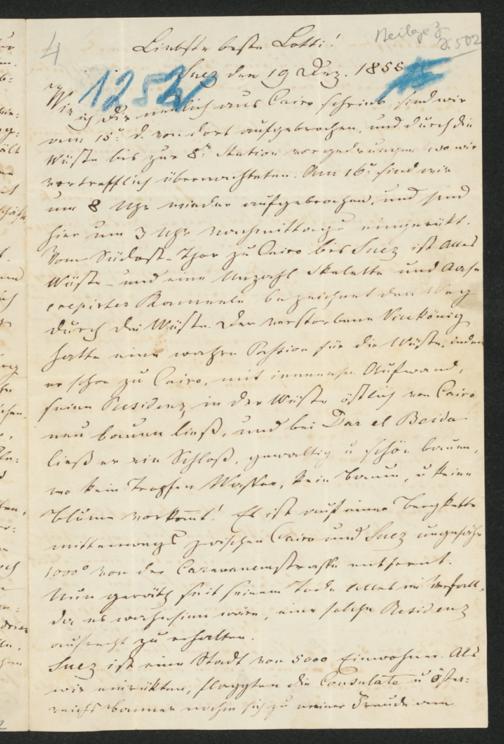 4
Beilage 3
z. 502
Liebste beste Lotti!
1252
Suez den 19 Dez. 1855
Wie ich dir neulich aus Cairo schrieb, sind wir
am 15t d. von dort aufgebrochen, und durch die
Wüste bis zur 8t Station vorgedrungen, wo wir
vortrefflich übernachteten. Am 16t sind wir
um 8 Uhr wieder aufgebrochen, und sind
hier um 3 Uhr nachmittags eingerückt.
Vom Thor zu Cairo bis Suez ist alles
Wüste – und eine Unzahl Skelette und Aase
crepirter Kameele bezeichnet den Weg
durch die Wüste. Der verstorbene Vicekönig
hatte eine wahre Passion für die Wüste, indem
er schon zu Cairo, mit immensem Aufwand,
seine Residenz in der Wüste östlich von Cairo
neu bauen ließ, und bei Dar el Beida
ließ er ein Schloß, gewaltig u schön bauen,
wo kein Tropfen Wasser, kein Baum, u keine
Blume vorkommt! Es ist auf einer Bergkette
mittenwegs zwischen Cairo und Suez ungefähr
1000° von der Caravanenstrasse entfernt.
Nun geräth seit seinem Tode alles in Verfall,
da es wahnsinn wäre, eine solche Residenz
aufrecht zu erhalten.
Suez ist eine Stadt von 5000 Einwohner. Als
wir einrückten, flaggten die Consulate u Öster-
reichs Banner nahm sich zu meiner Freude am